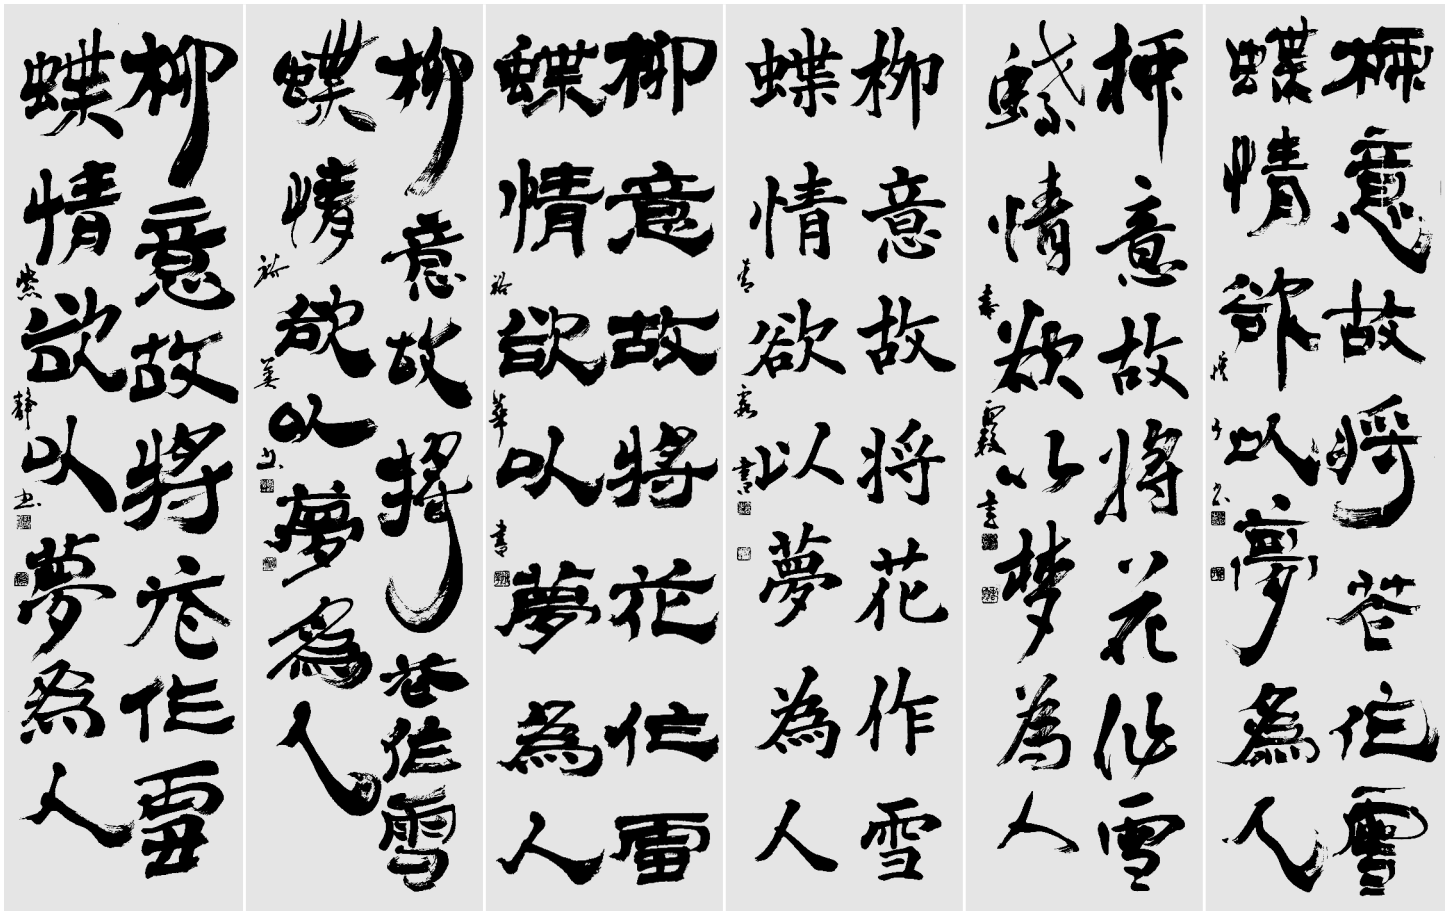 柳意故將花作雪
蝶情欲以夢為人
柳意故將花作雪
蝶情欲以夢為人
書
柳意故將花作雪
蝶情欲以夢為人
裕華書
柳意故將花作雪
蝶情欲以夢為人
書
柳意故將花作雪
蝶情欲以夢為人
裕美書
柳意故將花作雪
蝶情欲以夢為人
紫靜書